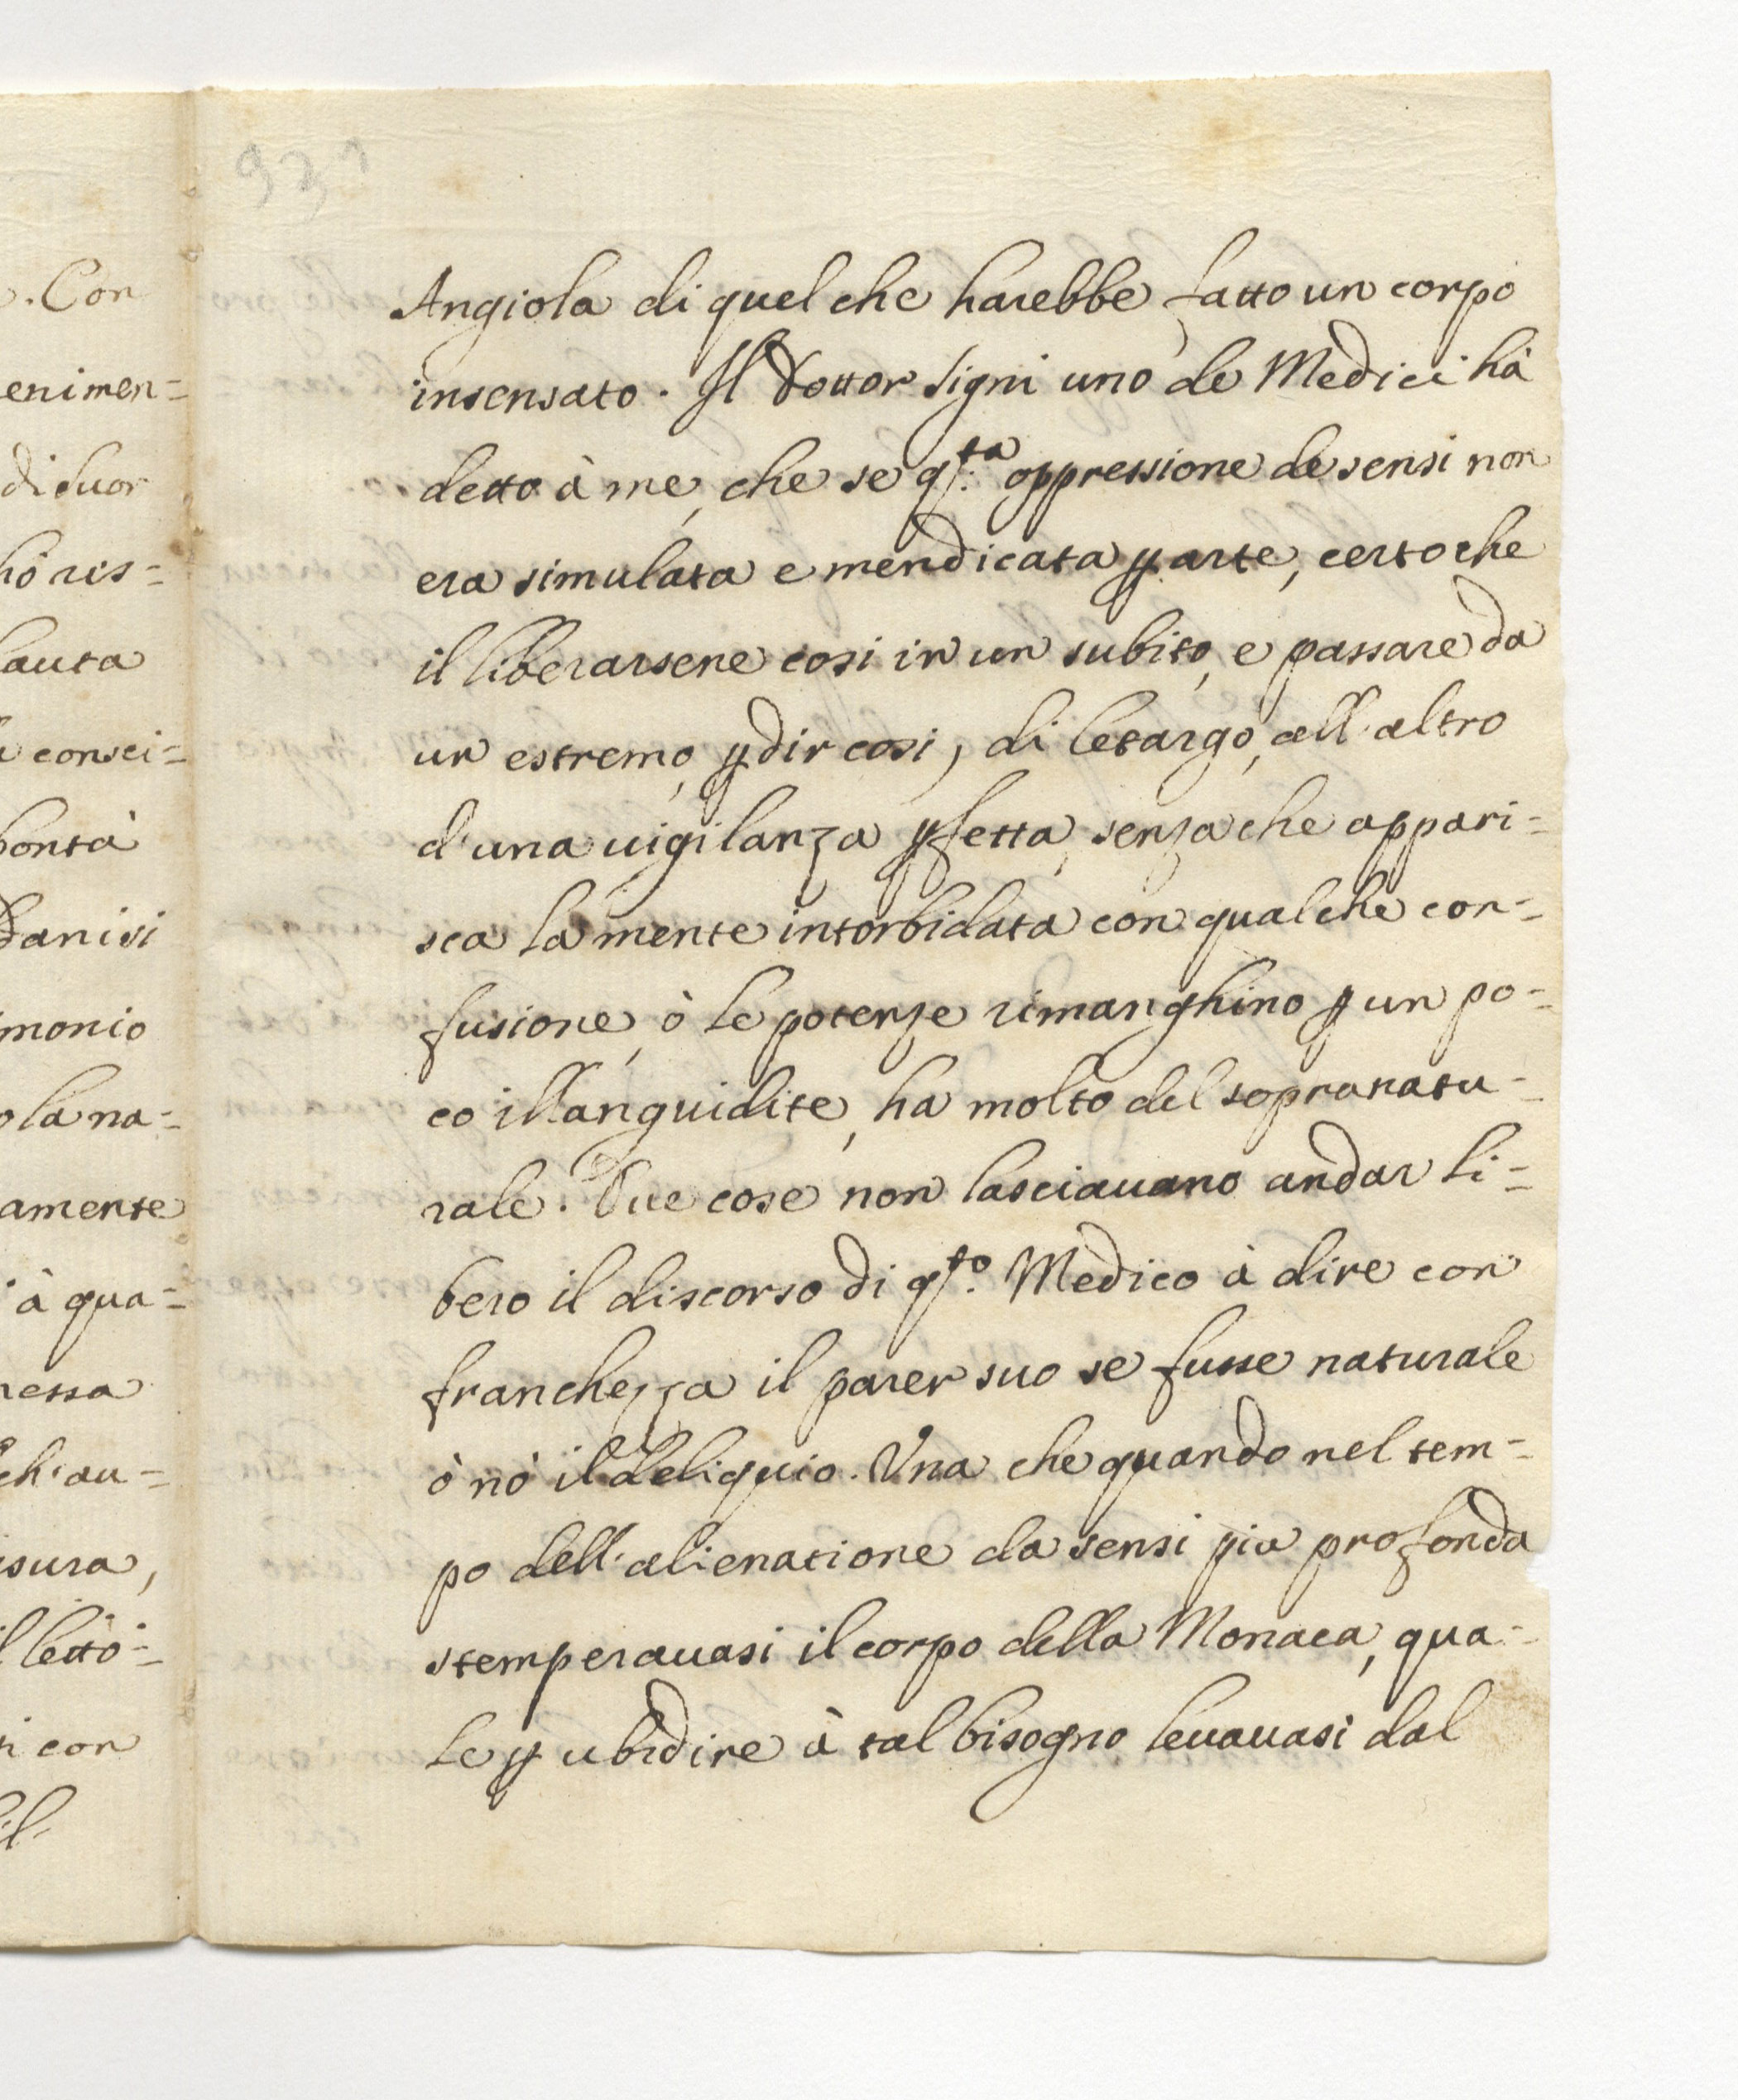 Angiola di quel che harebbe fatto un corpo
insensato. Il Dottor Signi uno de Medici hà
detto à me, che se q.ta oppressione de sensi non
era simulata e mendicata ꝑ arte, certo che
il liberarsene cosi in un subito, e passare da
un estremo, ꝑ dir cosi, di letargo, all'altro
d'una uigilanza ꝑfetta, senza che appari=
sca la mente intorbidata con qualche con=
fusione, ò le potenze rimanghino ꝑ un po=
co illanguidite, ha molto del sopranatu=
rale. Due cose non lasciauano andar li=
bero il discorso di q.to Medico à dire con
franchezza il parer suo se fusse naturale
ò nò il deliquio. Una che quando nel tem=
po dell'alienatione da sensi più profonda
stemperauasi il corpo della Monaca, qua=
le ꝑ ubidire à tal bisogno leuauasi dal
. Con
enimen=
di suor
hò ris=
lauta
consci=
bontà
danisi
monio
la na=
amente
à qua=
messa
ch'au=
isura,
il letto=
con